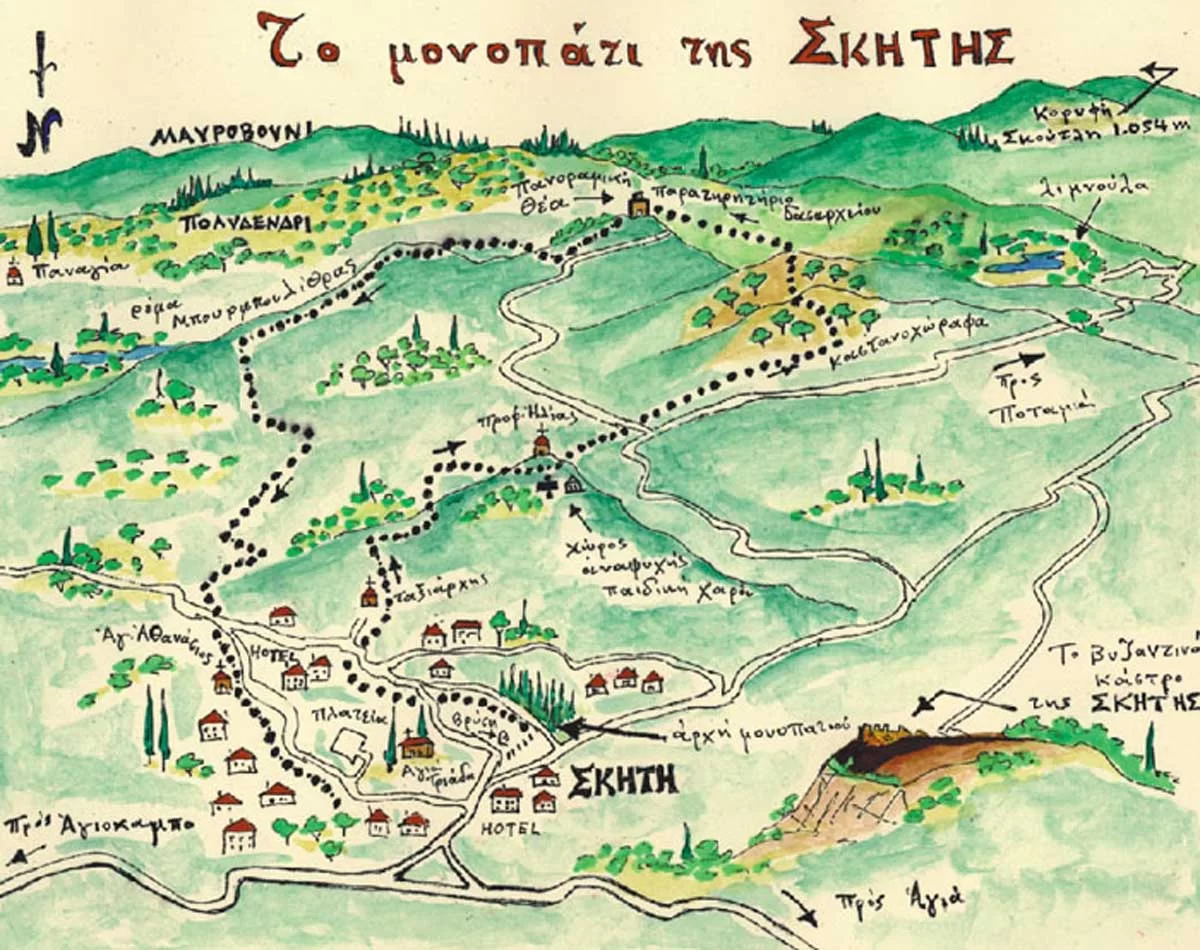 Το μονοπάτι της ΣΚΗΤΗΣ
N
ΜΑΥΡΟΒΟΥΝΙ
Κορυφή
Σκούτλη 1.054 m
Πανοραμική
Θέα
Παρατηρητήριο
δασαρχείου
λιμνούλα
ΠΟΛΥΔΕΝΔΡΙ
Παναγία
ρέμα
Μπουρμπουλίθρας
καστανοχώραφα
προς
Ποταμιά
Προφ. Ηλίας
χώρος
αναψυχής
παιδική χαρά
ταξιάρχης
Αγ. Αθανάσιος
HOTEL
Πλατεία
βρύση
Αγία
Τριάδα
ἀρχή μονοπατιού
Το βυζαντινό
κάστρο
της ΣΚΗΤΗΣ
ΣΚΗΤΗ
HOTEL
Πρός Ἁγιόκαμπο
πρός Ἁγιά